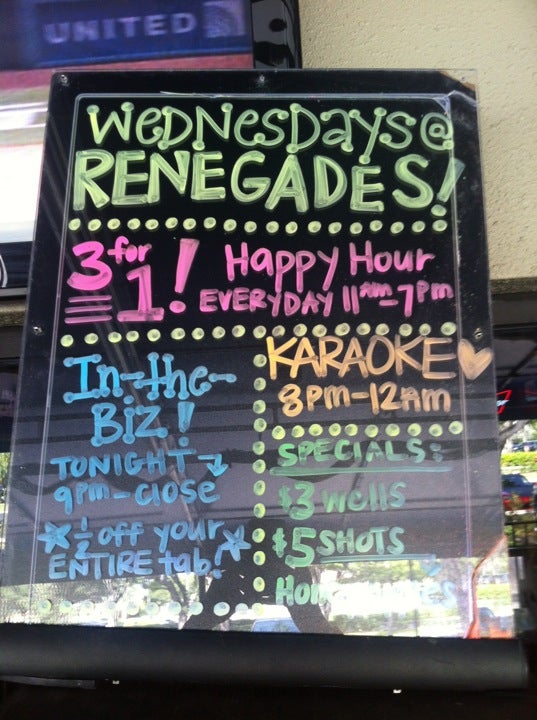 UNITED
WEDNesDays@
RENEGADES!
3 for 1! Happy Hour
EVERYDAY 11AM-7pm
In-the-
Biz!
TONIGHT
9pm-close
1/2 off your
ENTIRE tab!
KARAOKE
8pm-12Am
SPECIALS:
$3 wells
$5 SHOTS